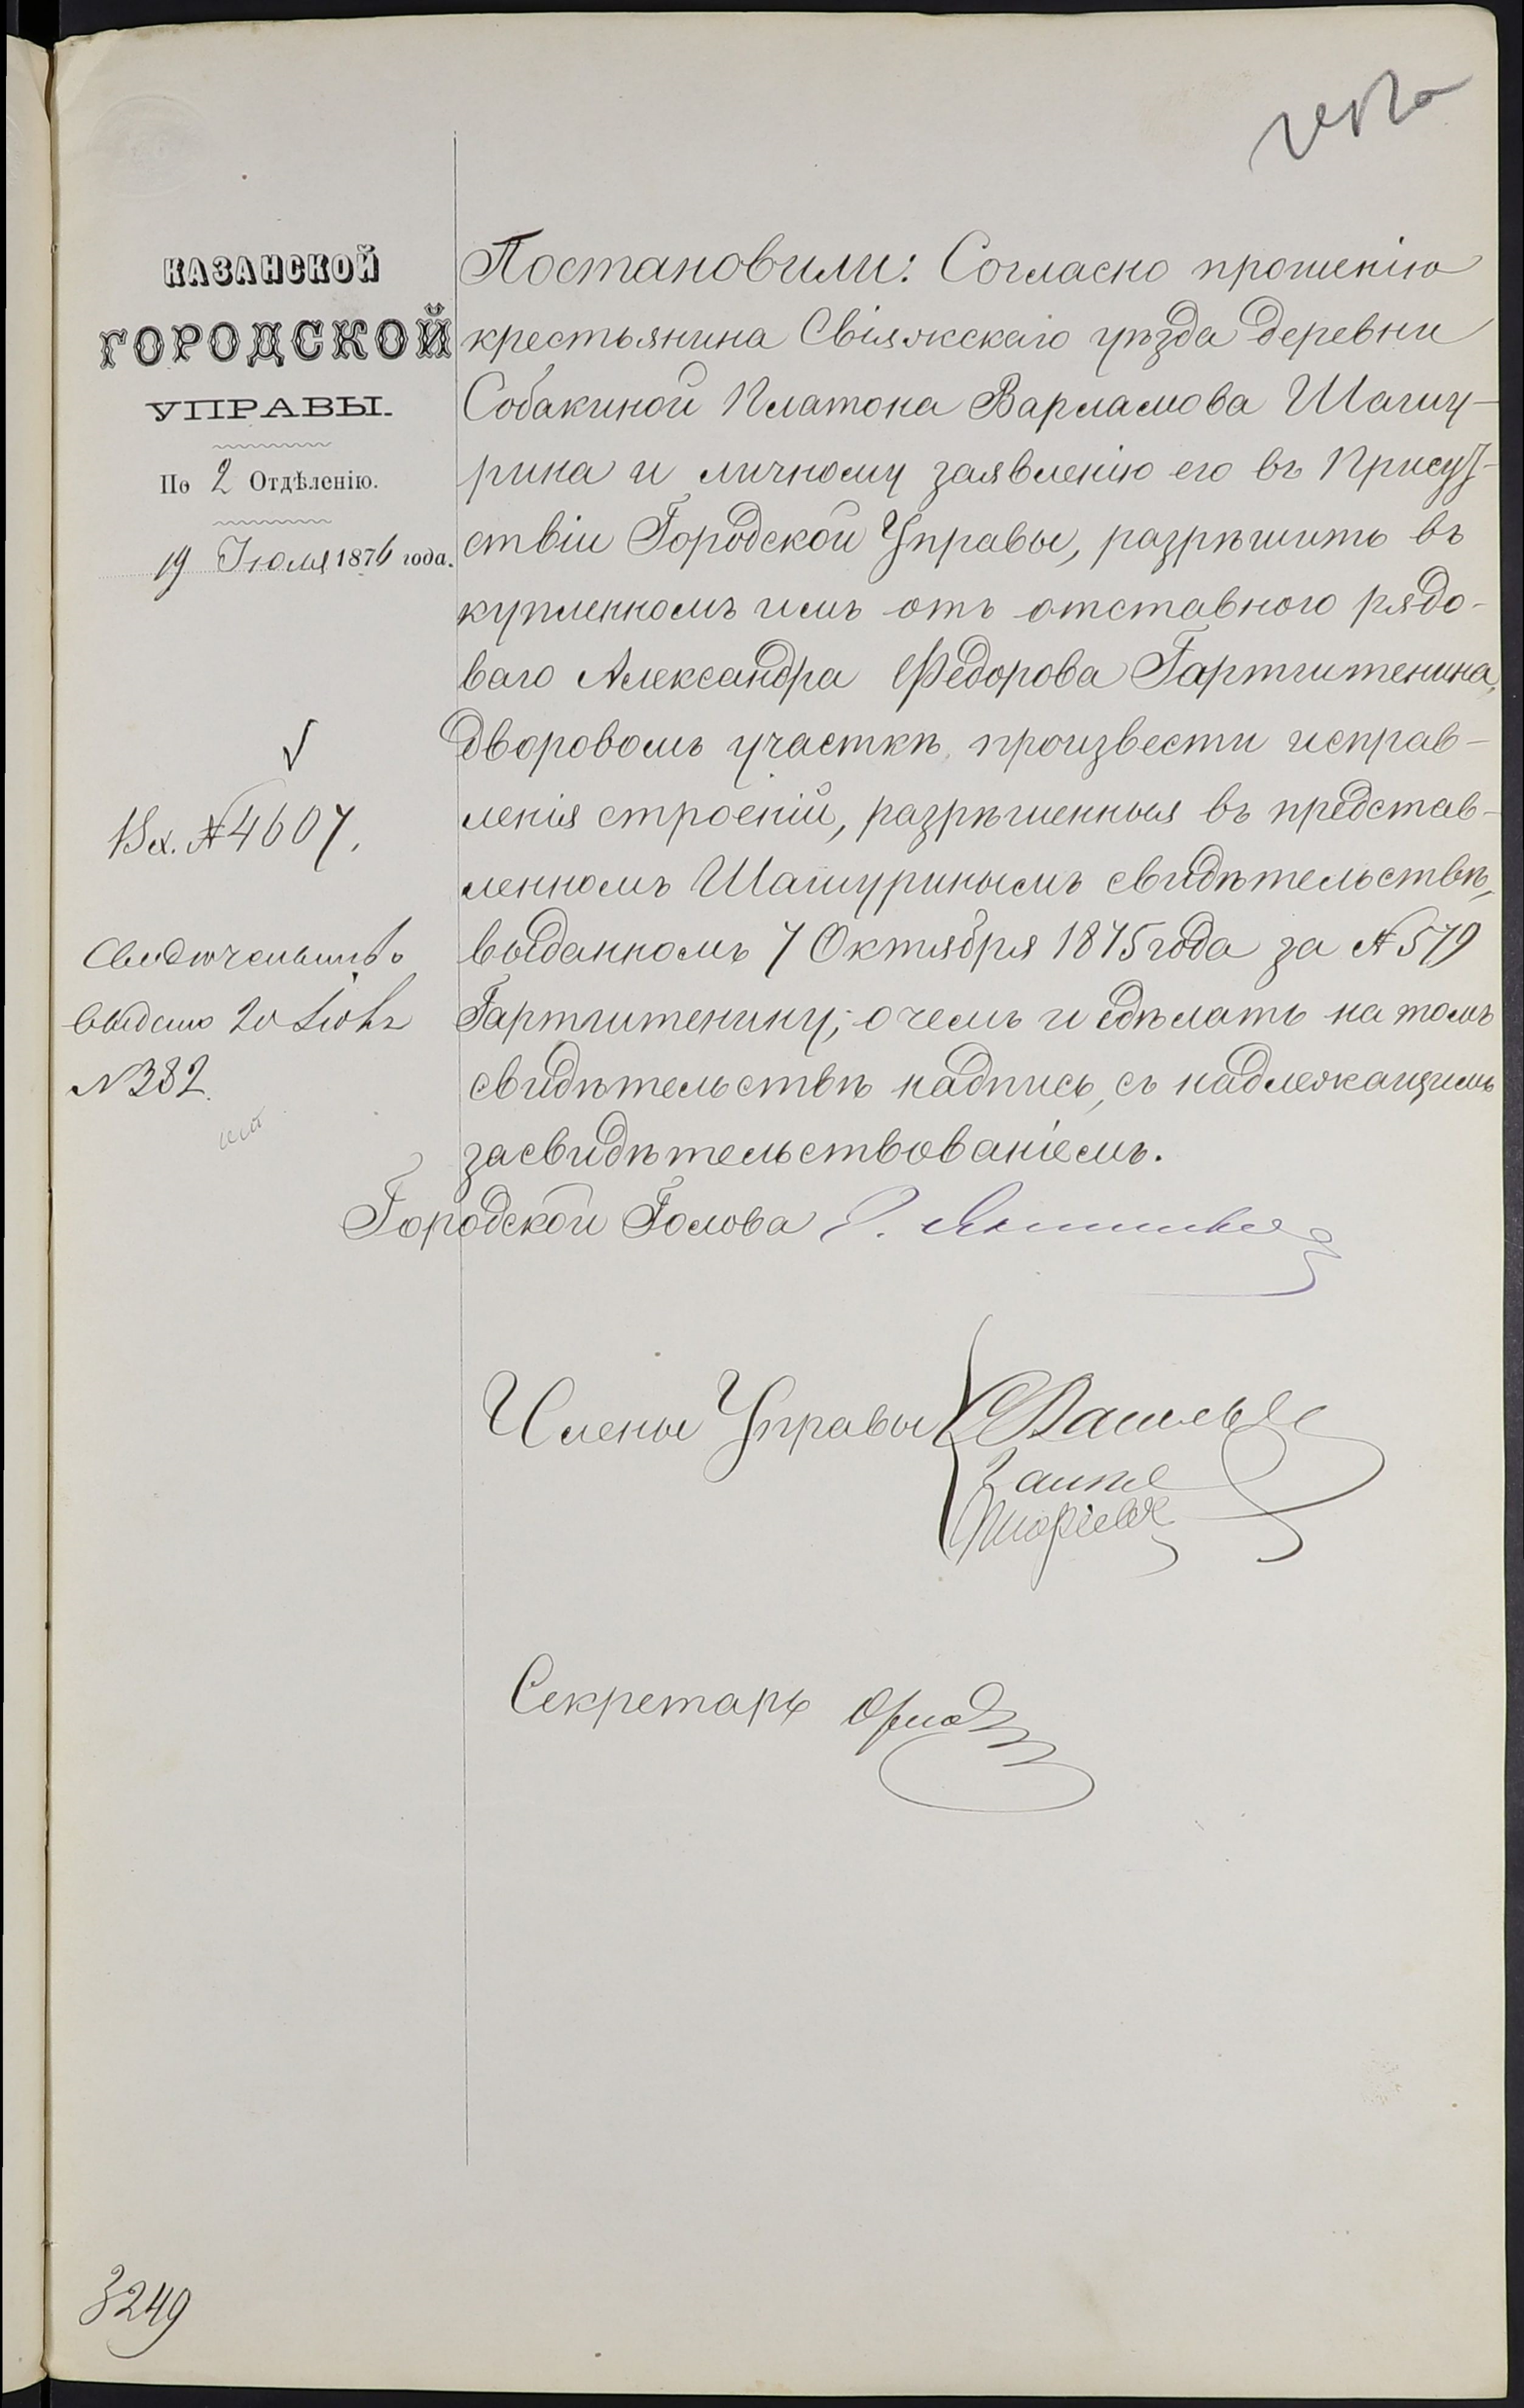 КАЗАНСКОЙ
ГОРОДСКОЙ
УПРАВЫ.
По 2 Отдѣленію.
19 Іюля 1876 года.
Вх. №4607.
Свидѣтельство
выдано 20 Іюля
№382.
Постановили: Согласно прошенію
крестьянина Свіяжскаго уѣзда деревни
Собакиной Платона Варламова Шашу-
рина и личному заявленію его въ Присут-
ствіи Городской Управы, разрѣшить въ
купленномъ имъ отъ отставного рядо-
ваго Александра Ѳедорова Гартштенина,
дворовомъ участкѣ, произвести исправ-
ленія строеній, разрѣшенныя въ представ-
ленномъ Шашуринымъ свидѣтельствѣ,
выданномъ 7 Октября 1875 года за №579
Гартштенину; о чемъ и сдѣлать на томъ
свидѣтельствѣ надпись, съ надлежащимъ
засвидѣтельствованіемъ.
Городской Голова
Члены Управы
Секретарь
3249